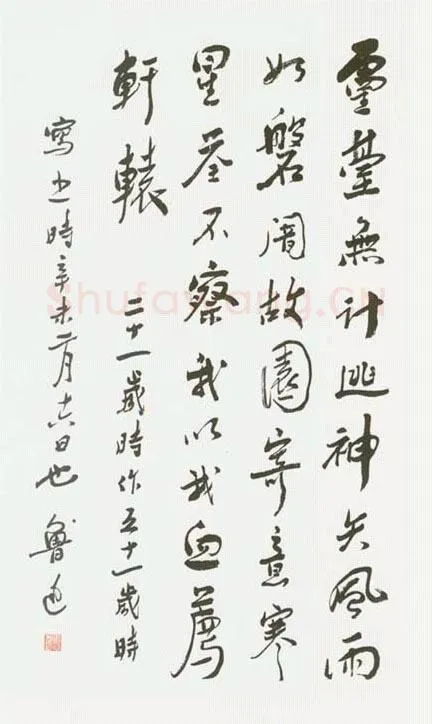 靈臺無計逃神矢風雨
如磐闇故園寄意寒
星荃不察我以我血薦
軒轅
二十一歲時作五十一歲時
寫之時辛未二月十六日也 魯迅
Shufawang.cn